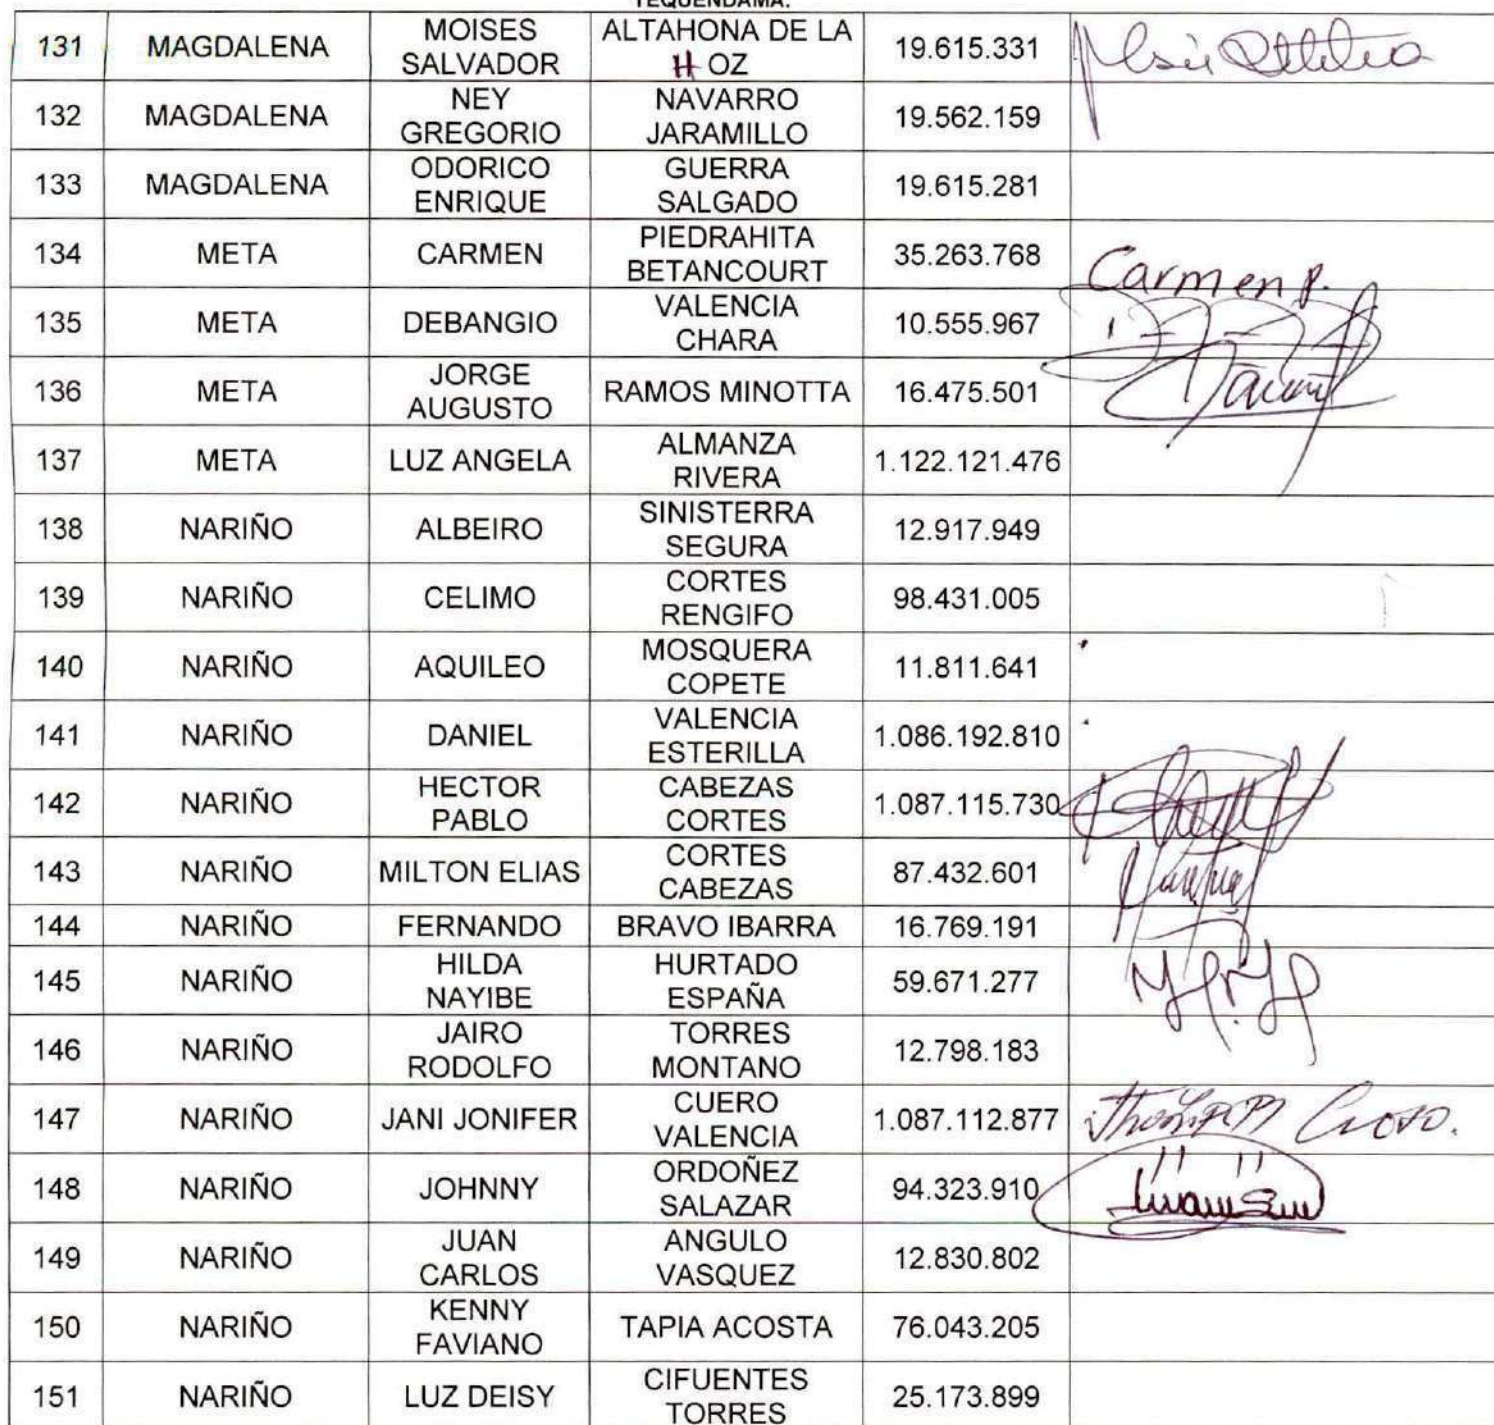 TEQUENDAMA.
131 MAGDALENA MOISES SALVADOR ALTAHONA DE LA H OZ 19.615.331
132 MAGDALENA NEY GREGORIO NAVARRO JARAMILLO 19.562.159
133 MAGDALENA ODORICO ENRIQUE GUERRA SALGADO 19.615.281
134 META CARMEN PIEDRAHITA BETANCOURT 35.263.768 Carmen P.
135 META DEBANGIO VALENCIA CHARA 10.555.967
136 META JORGE AUGUSTO RAMOS MINOTTA 16.475.501
137 META LUZ ANGELA ALMANZA RIVERA 1.122.121.476
138 NARIÑO ALBEIRO SINISTERRA SEGURA 12.917.949
139 NARIÑO CELIMO CORTES RENGIFO 98.431.005
140 NARIÑO AQUILEO MOSQUERA COPETE 11.811.641
141 NARIÑO DANIEL VALENCIA ESTERILLA 1.086.192.810
142 NARIÑO HECTOR PABLO CABEZAS CORTES 1.087.115.730
143 NARIÑO MILTON ELIAS CORTES CABEZAS 87.432.601
144 NARIÑO FERNANDO BRAVO IBARRA 16.769.191
145 NARIÑO HILDA NAYIBE HURTADO ESPAÑA 59.671.277
146 NARIÑO JAIRO RODOLFO TORRES MONTANO 12.798.183
147 NARIÑO JANI JONIFER CUERO VALENCIA 1.087.112.877
148 NARIÑO JOHNNY ORDOÑEZ SALAZAR 94.323.910
149 NARIÑO JUAN CARLOS ANGULO VASQUEZ 12.830.802
150 NARIÑO KENNY FAVIANO TAPIA ACOSTA 76.043.205
151 NARIÑO LUZ DEISY CIFUENTES TORRES 25.173.899